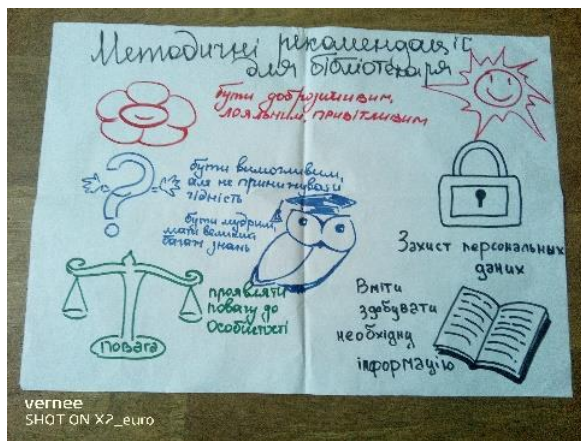 Методичні рекомендації
для бібліотекаря
бути доброзичливим,
лояльним, привітливим
бути вимогливим,
але не принижувати
гідність
бути мудрим,
мати великий
багаж знань
Захист персональных
даних
проявляти
повагу до
Особистості
повага
Вміти
здобувати
необхідну
інформацію
vernee
SHOT ON X2_euro